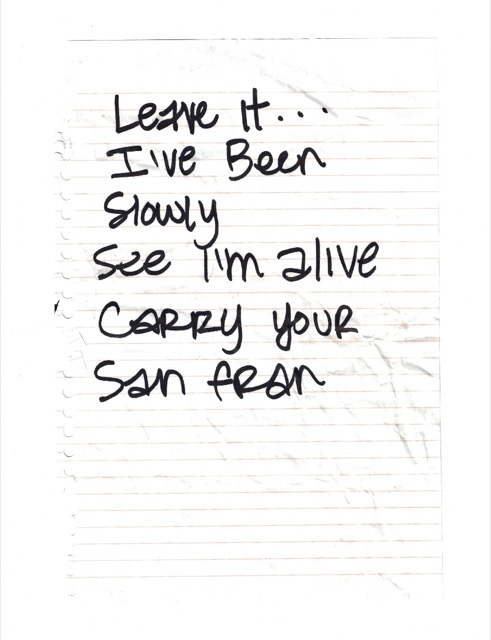 Leave it...
I've Been
Slowly
See I'm alive
Carry your
San fran